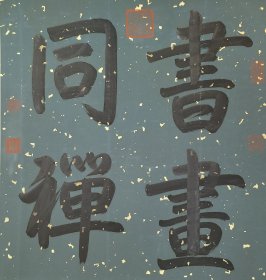 書畫
同禪